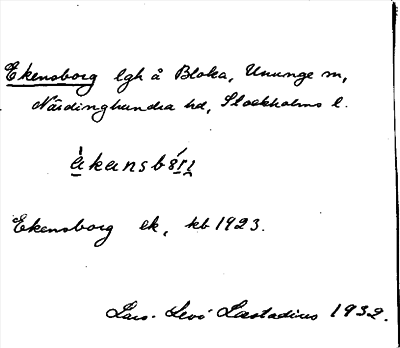 Ekensborg lgh å Bloka, Ununge sn,
Närdinghundra hd, Stockholms l.
Ekensborg ek, kb 1923.
Lars-Levi Læstadius 1932.